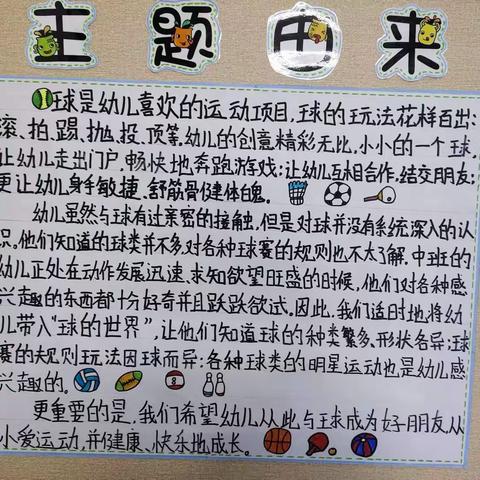 主题由来
球是幼儿喜欢的运动项目,球的玩法花样百出:
滚、拍、踢、抛、投、顶等,幼儿的创意精彩无比,小小的一个球,
让幼儿走出门户,畅快地奔跑游戏;让幼儿互相合作,结交朋友;
更让幼儿身手敏捷、舒筋骨健体魄。
幼儿虽然与球有过亲密的接触,但是对球并没有系统深入的认
识。他们知道的球类并不多,对各种球赛的规则也不太了解,中班的
幼儿正处在动作发展迅速、求知欲望旺盛的时候,他们对各种感
兴趣的东西都十分好奇并且跃跃欲试。因此,我们适时地将幼
儿带入“球的世界”,让他们知道球的种类繁多、形状各异;球
赛的规则玩法因球而异;各种球类的明星运动也是幼儿感
兴趣的。
8
更重要的是,我们希望幼儿从此与球成为好朋友,从
小爱运动,并健康、快乐地成长。